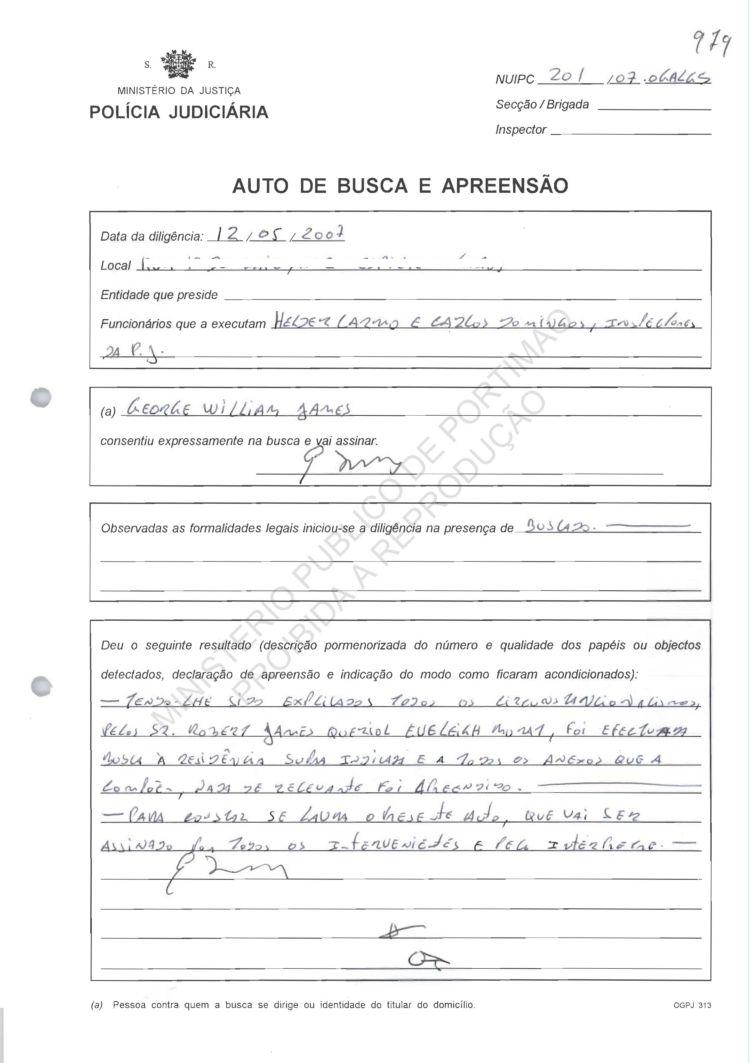 979
S. R.
MINISTÉRIO DA JUSTIÇA
POLÍCIA JUDICIÁRIA
NUIPC 201 /07.0GALGS
Secção / Brigada
Inspector
AUTO DE BUSCA E APREENSÃO
Data da diligência: 12/05/2007
Local
Entidade que preside
Funcionários que a executam HELDER CARMO E CARLOS DOMINGOS, INSPECTORES
DA P.J.
(a) GEORGE WILLIAM JAMES
consentiu expressamente na busca e vai assinar.
Observadas as formalidades legais iniciou-se a diligência na presença de BUSCADO.
Deu o seguinte resultado (descrição pormenorizada do número e qualidade dos papéis ou objectos
detectados, declaração de apreensão e indicação do modo como ficaram acondicionados):
— TENDO-LHE SIDO EXPLICADOS TODOS OS CIRCUNSTANCIONALISMOS,
PELOS SR. ROBERT JAMES QUERIOL EVELEIGH MURAT, FOI EFECTUADA
BUSCA À RESIDÊNCIA SUPRA INDICADA E A TODOS OS ANEXOS QUE A
COMPÕEM, NADA DE RELEVANTE FOI APREENDIDO.
— PARA CONSTAR SE LAVRA O PRESENTE AUTO, QUE VAI SER
ASSINADO POR TODOS OS INTERVENIENTES E PELO INTÉRPRETE. —
(a) Pessoa contra quem a busca se dirige ou identidade do titular do domicílio.
OGPJ 313
MINISTÉRIO PUBLICO DE PORTIMÃO
PROIBIDA A REPRODUÇÃO